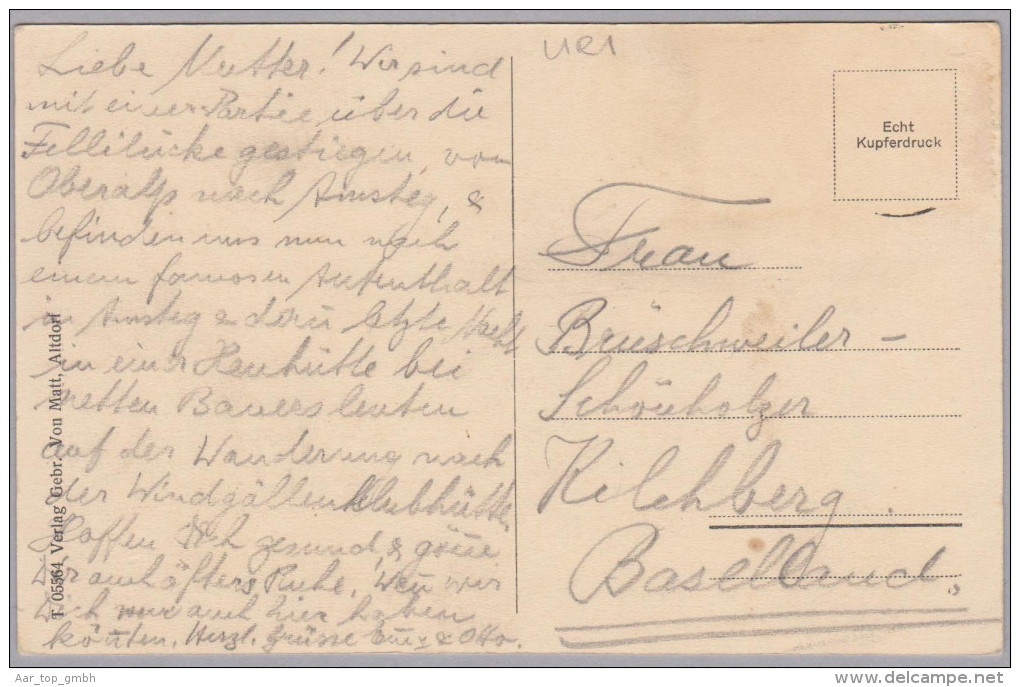 Liebe Mutter! Wir sind
mit einer Partie über die
Fellilücke gestiegen, vom
Oberalp nach Amsteg, &
befinden uns nun nach
einem famosen Aufenthalt
in Amsteg & derü letzte Nacht
in einer Heuhütte bei
netten Bauersleuten
auf der Wanderung nach
der Windgällenklubhütte
Hoffen Dich gesund, &
Dir auch öfters Ruhe. Weñ wir
Dich nur auch hier haben
köñten. Herzl. Grüsse & Otto.
T 05564 Verlag Gebr. Von Matt, Altdorf
URI
Echt
Kupferdruck
Frau
Brüschweiler-
Schönholzer
Kilchberg.
Baselland.
Aar_top_gmbh
delcampe.net